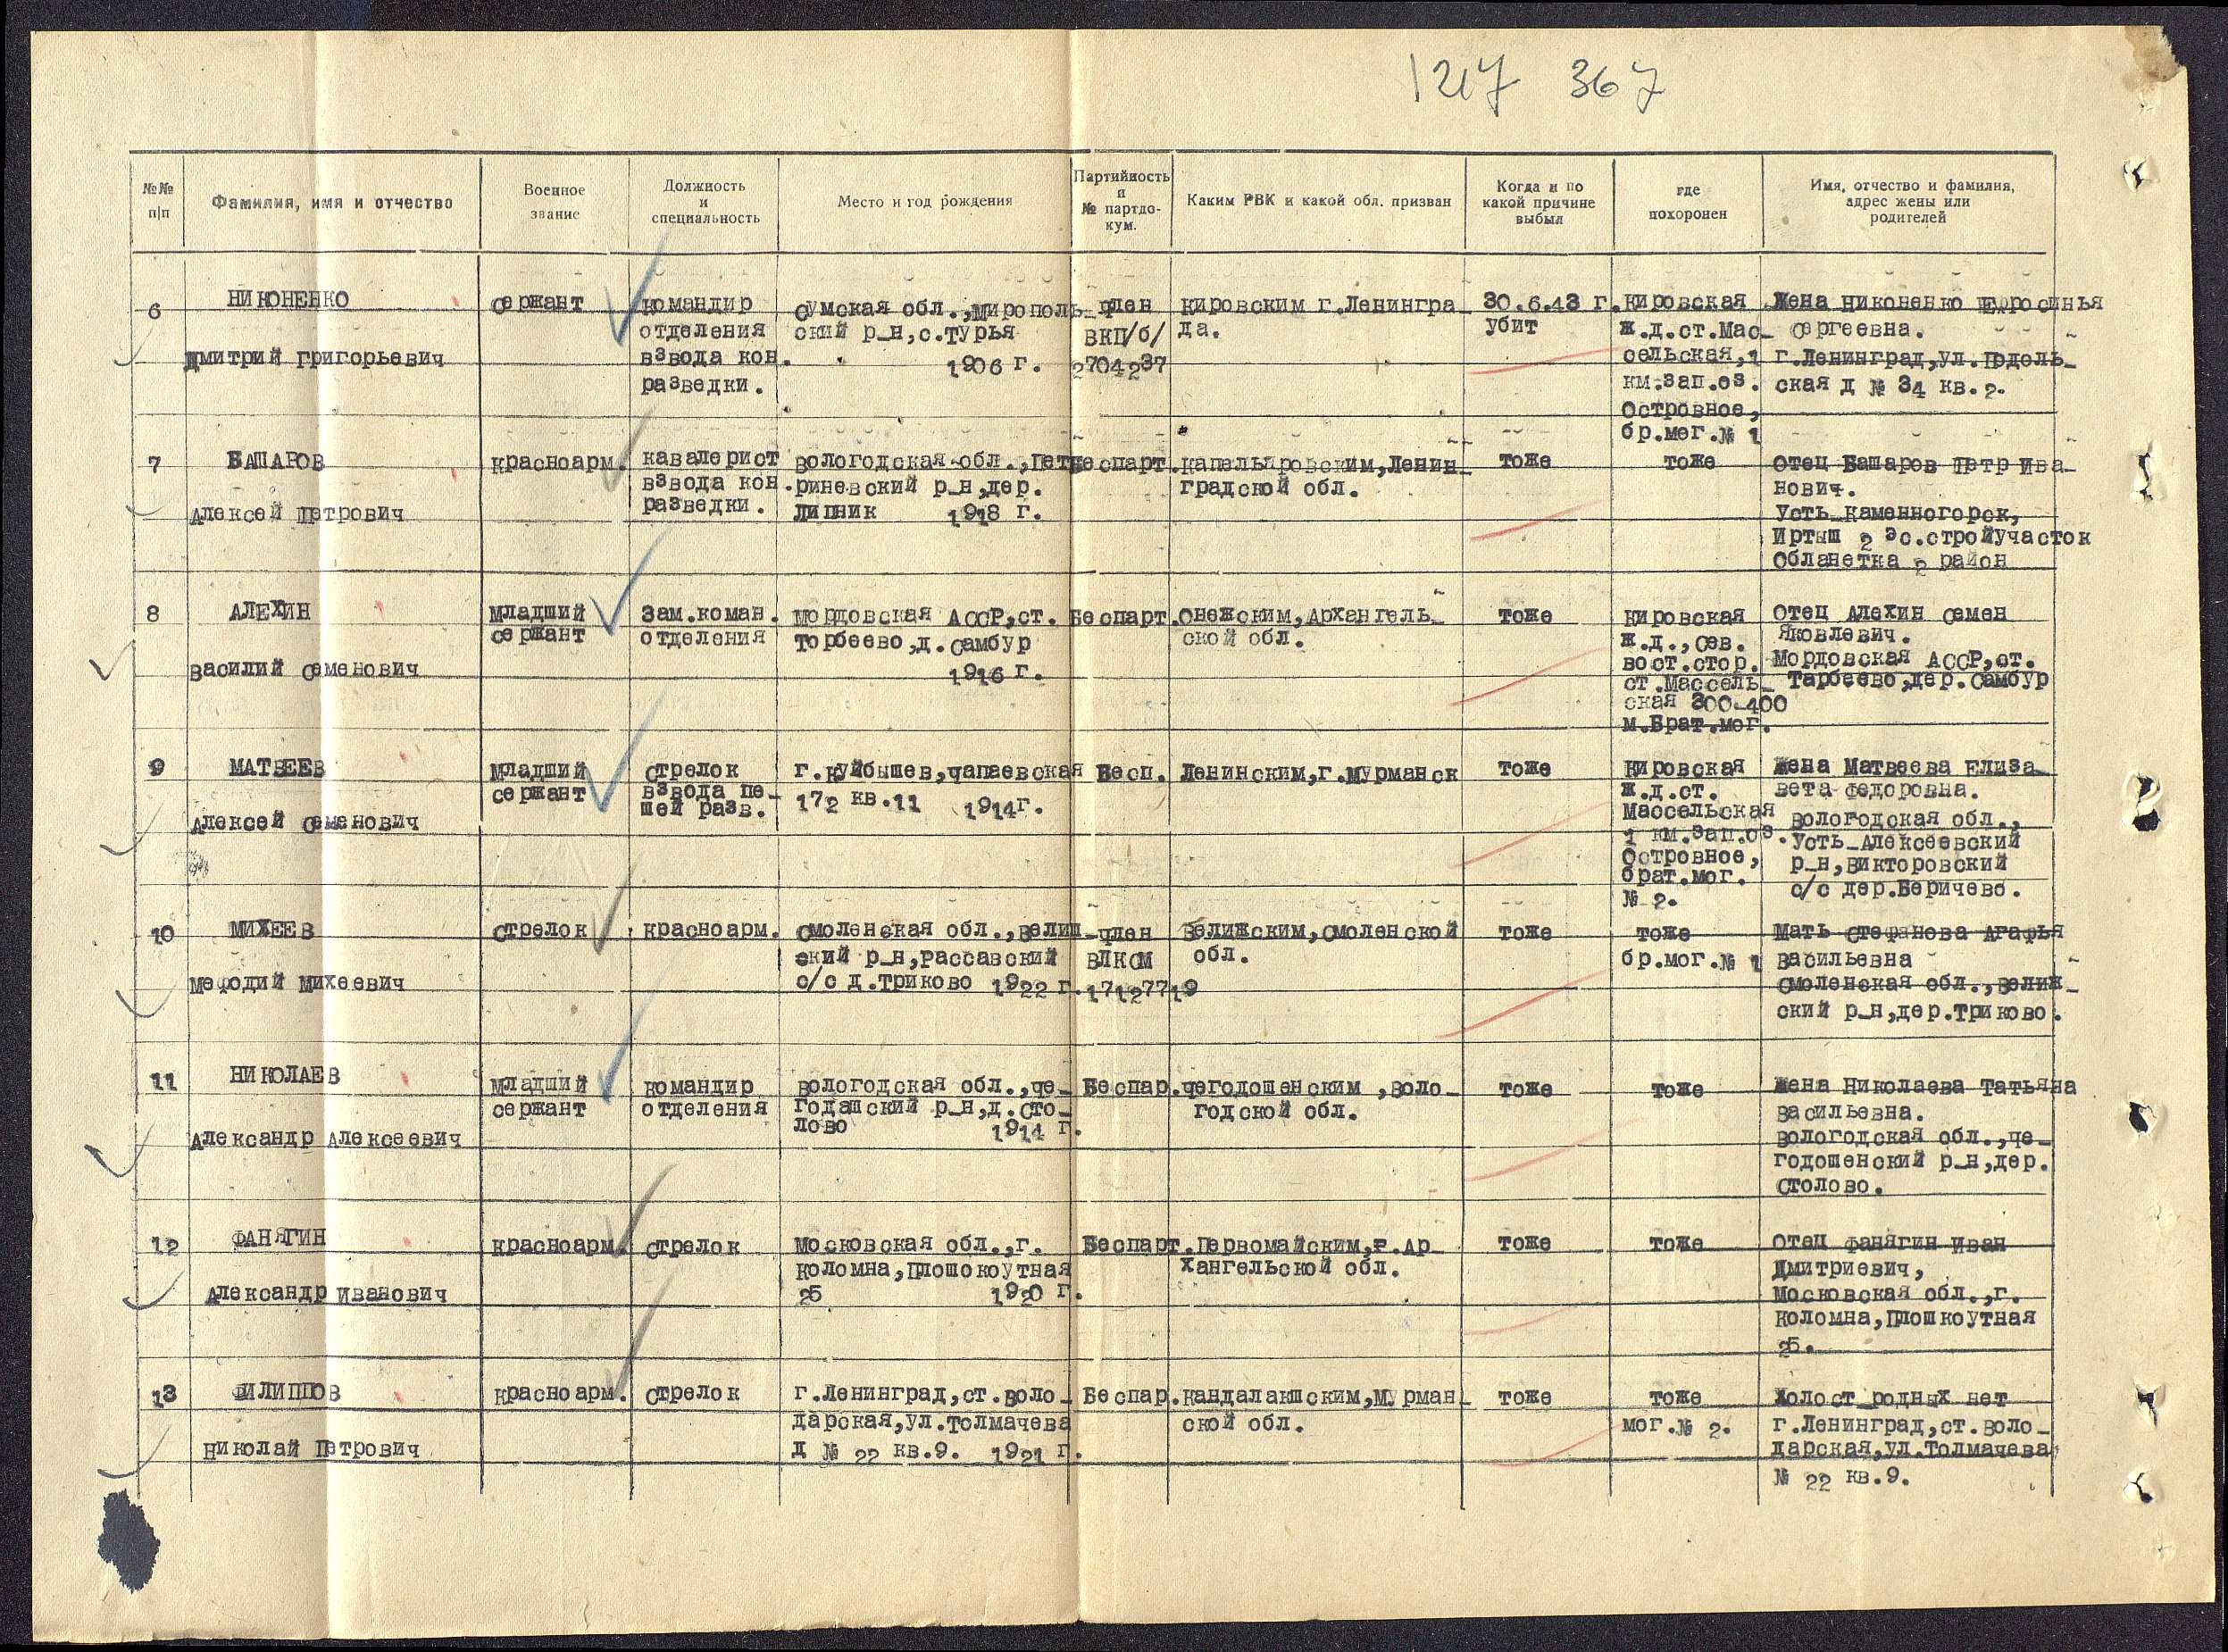 1217 367
№№ п/п
Фамилия, имя и отчество
Военное звание
Должность и специальность
Место и год рождения
Партийность и № партдокум.
Каким РВК и какой обл. призван
Когда и по какой причине выбыл
где похоронен
Имя, отчество и фамилия, адрес жены или родителей
6
НИКОНЕНКО
Дмитрий Григорьевич
Сержант
Командир
отделения
взвода кон.
разведки.
Сумская обл.,Мирополь-
ский р-н,с.Турья
1906 г.
член
ВКП/б/
2704237
Кировским г.Ленингра-
да.
30.6.43 г.
убит
Кировская
ж.д.ст.Мас-
сельская,1
км.зап.оз.
Островное,
бр.мог.№ 1
Жена Никоненко Ефросинья
Сергеевна.
г.Ленинград,ул.Подоль-
ская д № 34 кв.2.
7
БАШАРОВ
Алексей Петрович
Красноарм.
кавалерист
взвода кон.
разведки.
Вологодская обл.,Пет
риневский р-н,дер.
Липник 1918 г.
Беспарт.
Капельяровским,Ленин-
градской обл.
тоже
тоже
Отец Башаров Петр Ива-
нович.
Усть-Каменногорск,
Иртыш 2 эс.стройучасток
Обланетка 2 район
8
АЛЕХИН
Василий Семенович
Младший
сержант
Зам.коман.
отделения
Мордовская АССР,ст.
Торбеево,д.Самбур
1916 г.
Беспарт.
Онежским,Архангель-
ской обл.
тоже
Кировская
ж.д.,сев.
вост.стор.
ст.Массель-
ская 300-400
м.Брат.мог.
Отец Алехин Семен
Яковлевич.
Мордовская АССР,ст.
Тарбеево,дер.Самбур
9
МАТВЕЕВ
Алексей Семенович
Младший
сержант
Стрелок
взвода пе-
шей разв.
г.Куйбышев,Чапаевская
172 кв.11 1914г.
Бесп.
Ленинским,г.Мурманск
тоже
Кировская
ж.д.ст.
Массельская
1 км.зап.оз.
Островное,
брат.мог.
№ 2.
Жена Матвеева Елиза-
вета Федоровна.
Вологодская обл.,
Усть-Алексеевский
р-н,Викторовский
с/с дер.Беричево.
10
МИХЕЕВ
Мефодий Михеевич
Стрелок
красноарм.
Смоленская обл.,Велиш-
ский р-н,Рассавский
с/с д.Триково 1922 г.
член
ВЛКСМ
17127719
Велижским,Смоленской
обл.
тоже
тоже
бр.мог.№ 1
Мать Стефанова Агафья
Васильевна
Смоленская обл.,Велиж-
ский р-н,дер.Триково.
11
НИКОЛАЕВ
Александр Алексеевич
Младший
сержант
Командир
отделения
Вологодская обл.,Че-
годашский р-н,д.Сто-
лово 1914 г.
Беспар.
Чегодошенским ,Воло-
годской обл.
тоже
тоже
Жена Николаева Татьяна
Васильевна.
Вологодская обл.,Че-
годошенский р-н,дер.
Столово.
12
ФАНЯГИН
Александр Иванович
Красноарм.
Стрелок
Московская обл.,г.
Коломна,Плошокоутная
25 1920 г.
Беспарт.
Первомайским,г.Ар-
хангельской обл.
тоже
тоже
Отец Фанягин Иван
Дмитриевич,
Московская обл.,г.
Коломна,Плошкоутная
25.
13
ФИЛИППОВ
Николай Петрович
Красноарм.
Стрелок
г.Ленинград,ст.Воло-
дарская,ул.Толмачева
д № 22 кв.9. 1921 г.
Беспар.
Кандалакшским,Мурман-
ской обл.
тоже
тоже
мог.№ 2.
Холост родных нет
г.Ленинград,ст.Воло-
дарская,ул.Толмачева
№ 22 кв.9.